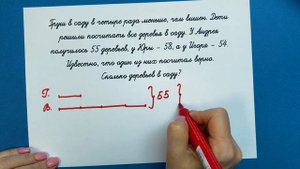 Груш в саду в четыре раза меньше, чем вишен. Дети
решили посчитать все деревья в саду. У Андрея
получилось 55 деревьев, у Юры - 58, а у Игоря - 54.
Известно, что один из них посчитал верно.
Сколько деревьев в саду?
Г.
В.
55